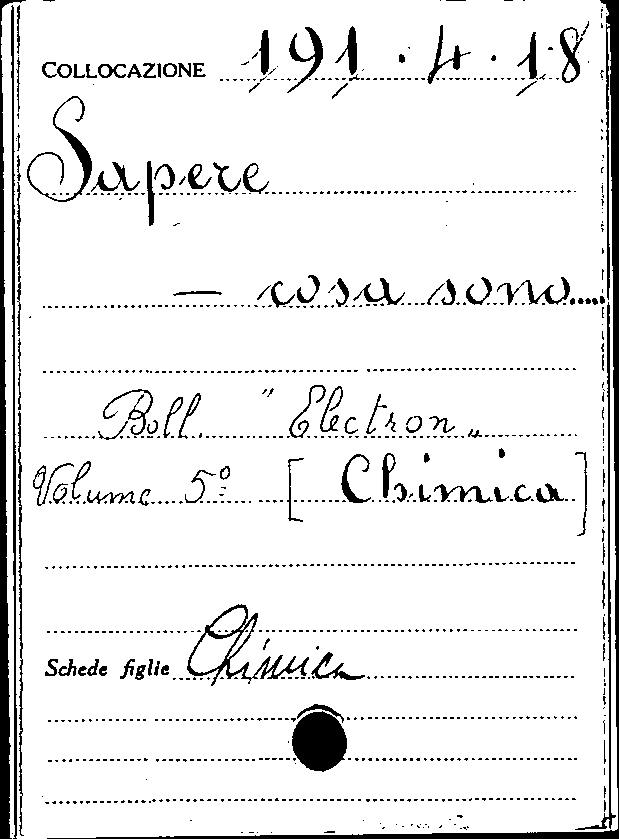 COLLOCAZIONE 191.4.18
Sapere
- cosa sono.....
Boll. "Electron"
Volume 5º [Chimica]
Schede figlie Chimica